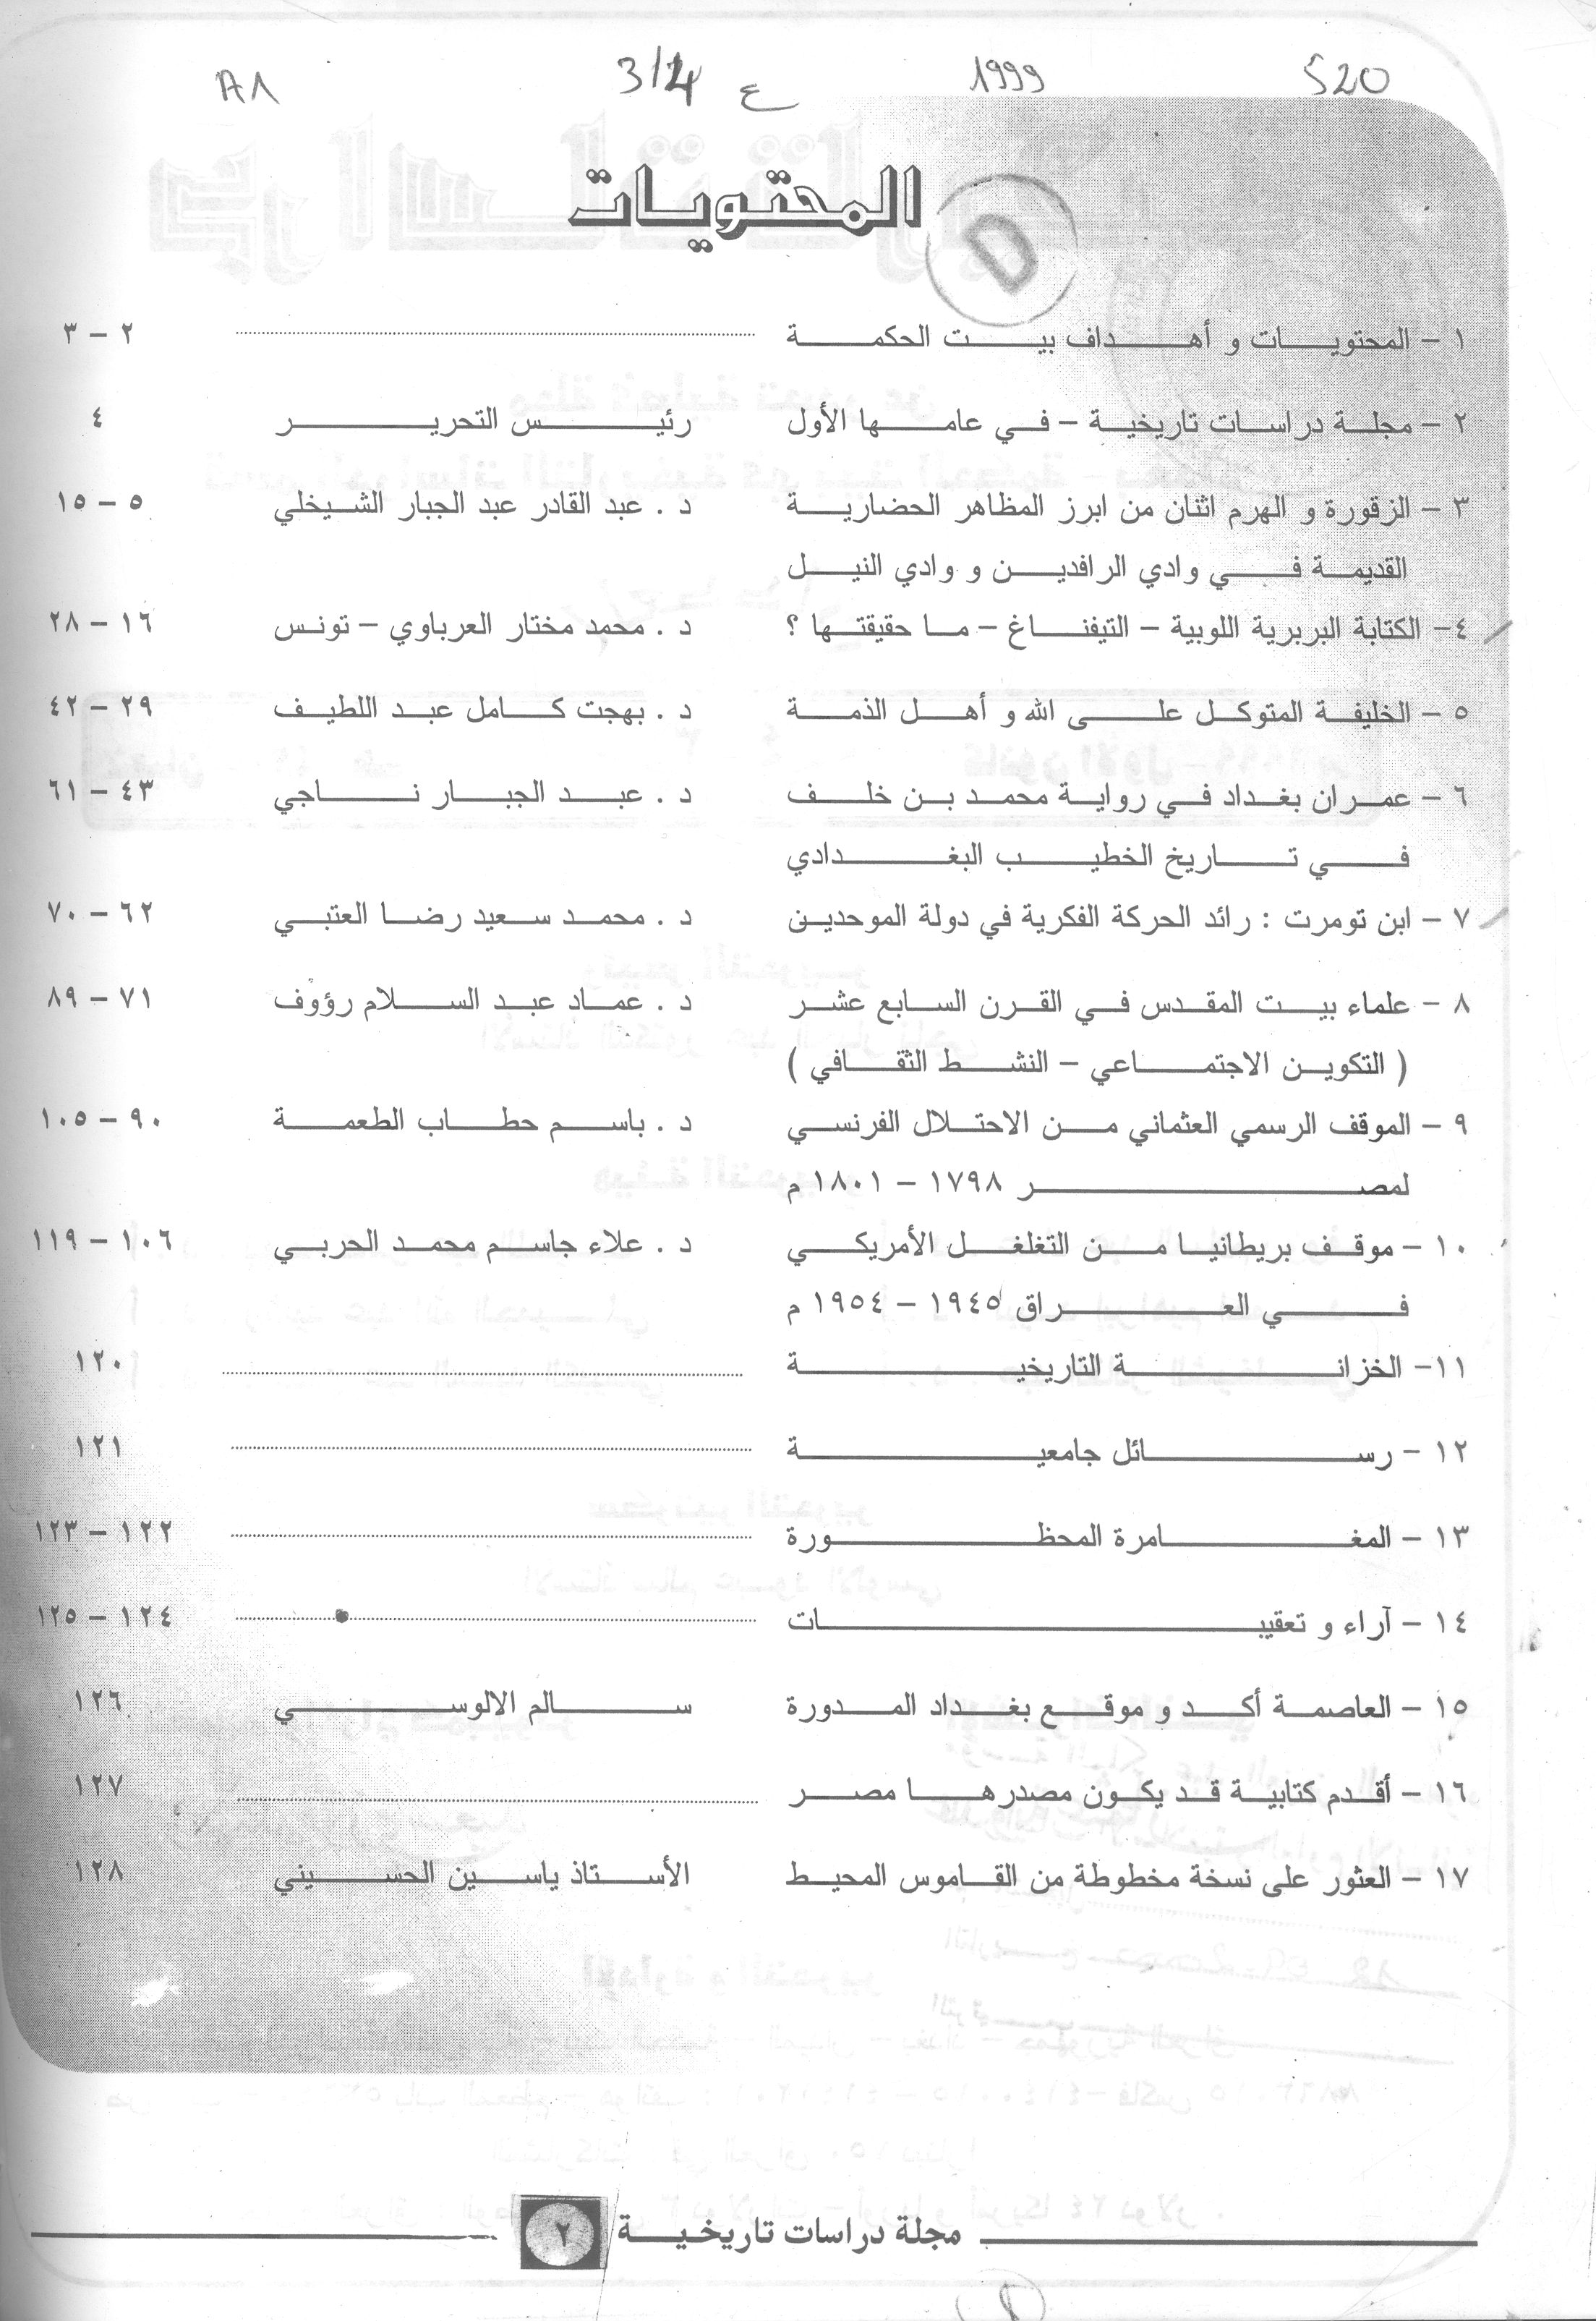 A1 3/4 ع 1999 520
المحتويات
D
١ - المحتويات و أهداف بيت الحكمة ٢ - ٣
٢ - مجلة دراسات تاريخية - في عامها الأول رئيس التحرير ٤
٣ - الزقورة و الهرم اثنان من ابرز المظاهر الحضارية د . عبد القادر عبد الجبار الشيخلي ٥ - ١٥
القديمة في وادي الرافدين و وادي النيل
٤- الكتابة البربرية اللوبية - التيفناغ - ما حقيقتها ؟ د . محمد مختار العرباوي - تونس ١٦ - ٢٨
٥ - الخليفة المتوكل على الله و أهل الذمة د . بهجت كامل عبد اللطيف ٢٩ - ٤٢
٦ - عمران بغداد في رواية محمد بن خلف د . عبد الجبار ناجي ٤٣ - ٦١
في تاريخ الخطيب البغدادي
٧ - ابن تومرت : رائد الحركة الفكرية في دولة الموحدين د . محمد سعيد رضا العتبي ٦٢ - ٧٠
٨ - علماء بيت المقدس في القرن السابع عشر د . عماد عبد السلام رؤوف ٧١ - ٨٩
( التكوين الاجتماعي - النشط الثقافي )
٩ - الموقف الرسمي العثماني من الاحتلال الفرنسي د . باسم حطاب الطعمة ٩٠ - ١٠٥
لمصر ١٧٩٨ - ١٨٠١ م
١٠ - موقف بريطانيا من التغلغل الأمريكي د . علاء جاسم محمد الحربي ١٠٦ - ١١٩
في العراق ١٩٤٥ - ١٩٥٤ م
١١- الخزانة التاريخية ١٢٠
١٢ - رسائل جامعية ١٢١
١٣ - المغامرة المحظورة ١٢٢ - ١٢٣
١٤ - آراء و تعقيبات ١٢٤ - ١٢٥
١٥ - العاصمة أكد و موقع بغداد المدورة سالم الالوسي ١٢٦
١٦ - أقدم كتابية قد يكون مصدرها مصر ١٢٧
١٧ - العثور على نسخة مخطوطة من القاموس المحيط الأستاذ ياسين الحسيني ١٢٨
مجلة دراسات تاريخية ٢